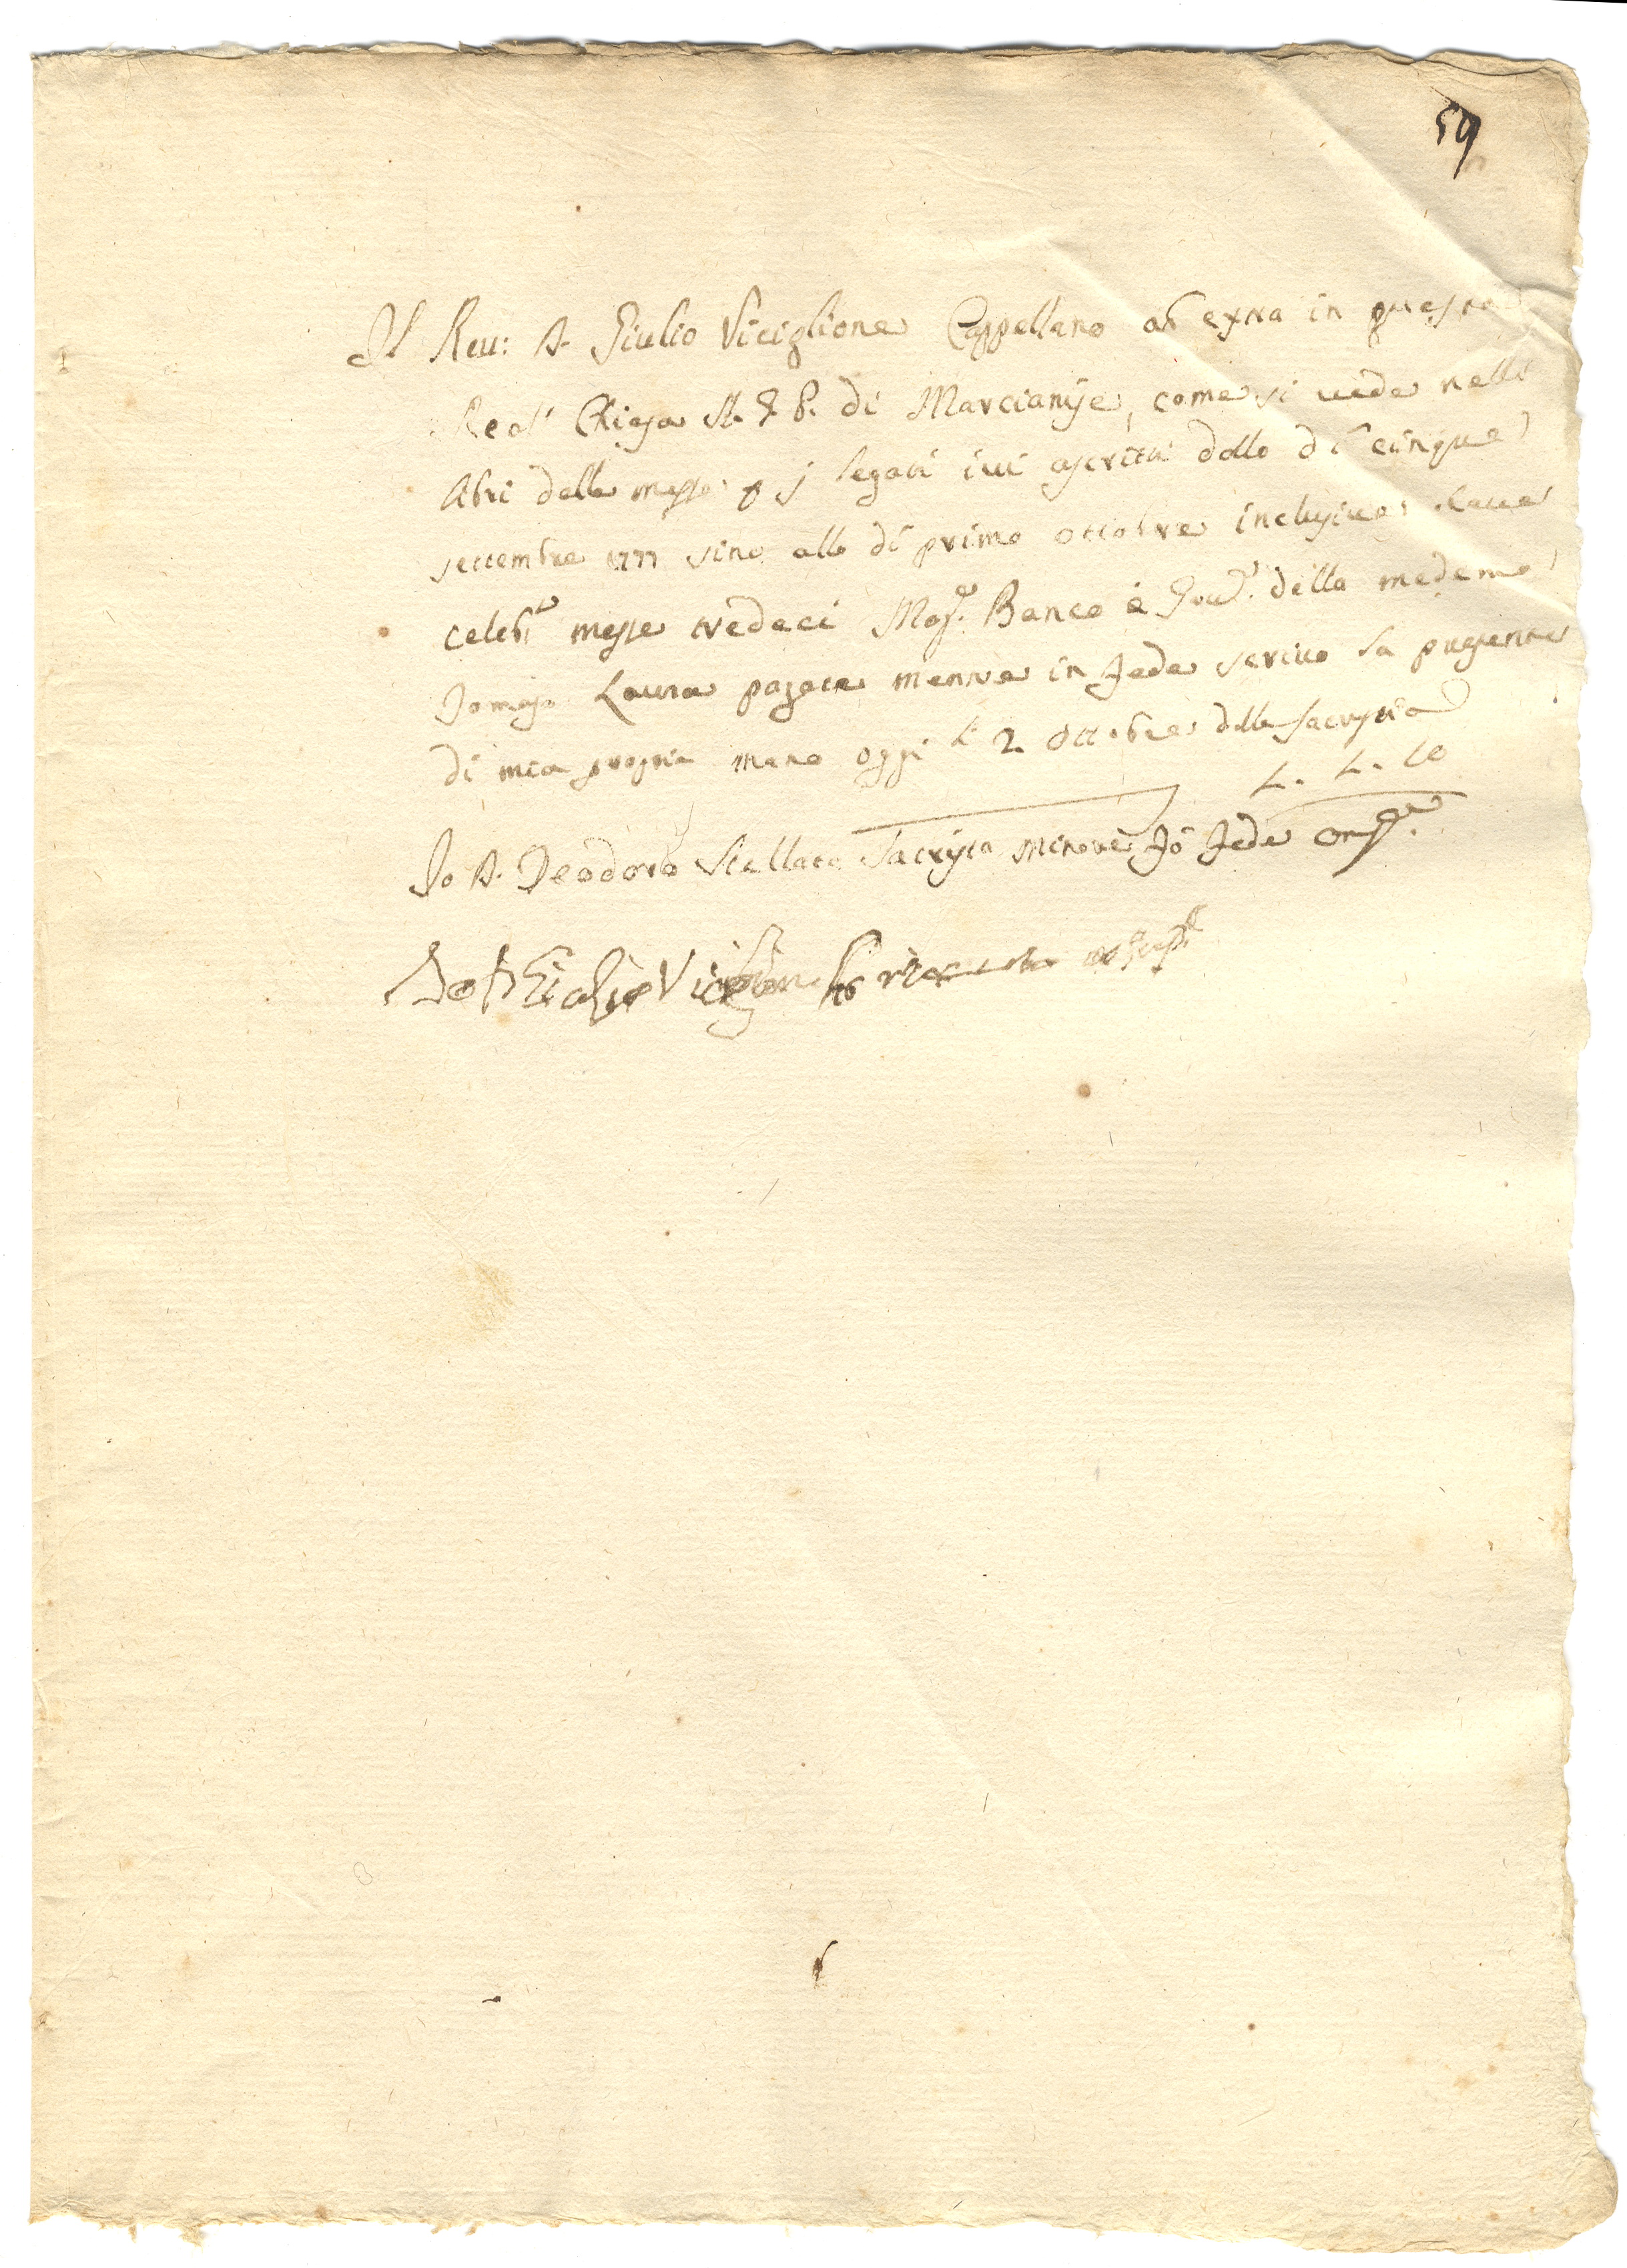 59
Il Reu: D. Giulio Viciglione Cappellano ad extra in questa
Real Chiesa di Marcianise, come si uede nelli
libri delle messe legati iui ascritti dallo dì cinque
settembre 1777 sino allo dì primo ottobre inclusiue haue
celeb.to messe tredeci Mag.co Banco è Gou.re della medema
pagare mentre in fede scriuo la presente
di mia propria mano oggi li 2 ottobre della sacrestia
Io D. Teodoro Stellato Sacrista minore fò fede
Io D. Giulio Viciglione hò riceuuto